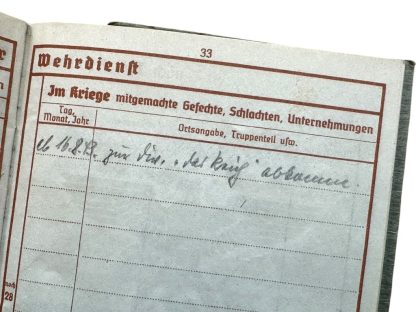 33
Wehrdienst
Im Kriege mitgemachte Gefechte, Schlachten, Unternehmungen
Tag, Monat, Jahr
Ortsangabe, Truppenteil usw.
zur Div. „das Reich"
28